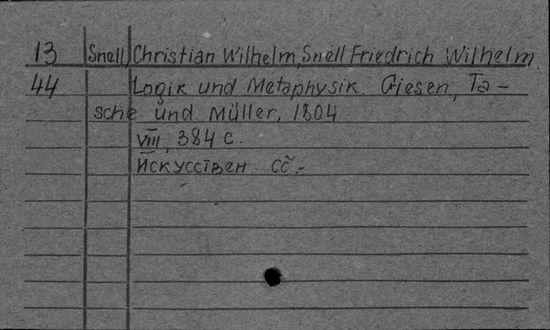 13 Snell, Christian Wilhelm, Snell Friedrich Wilhelm.
44 Logik und Metaphysik. Giesen, Ta-
sche und Müller, 1804
VIII, 384 с.
Искусствен.